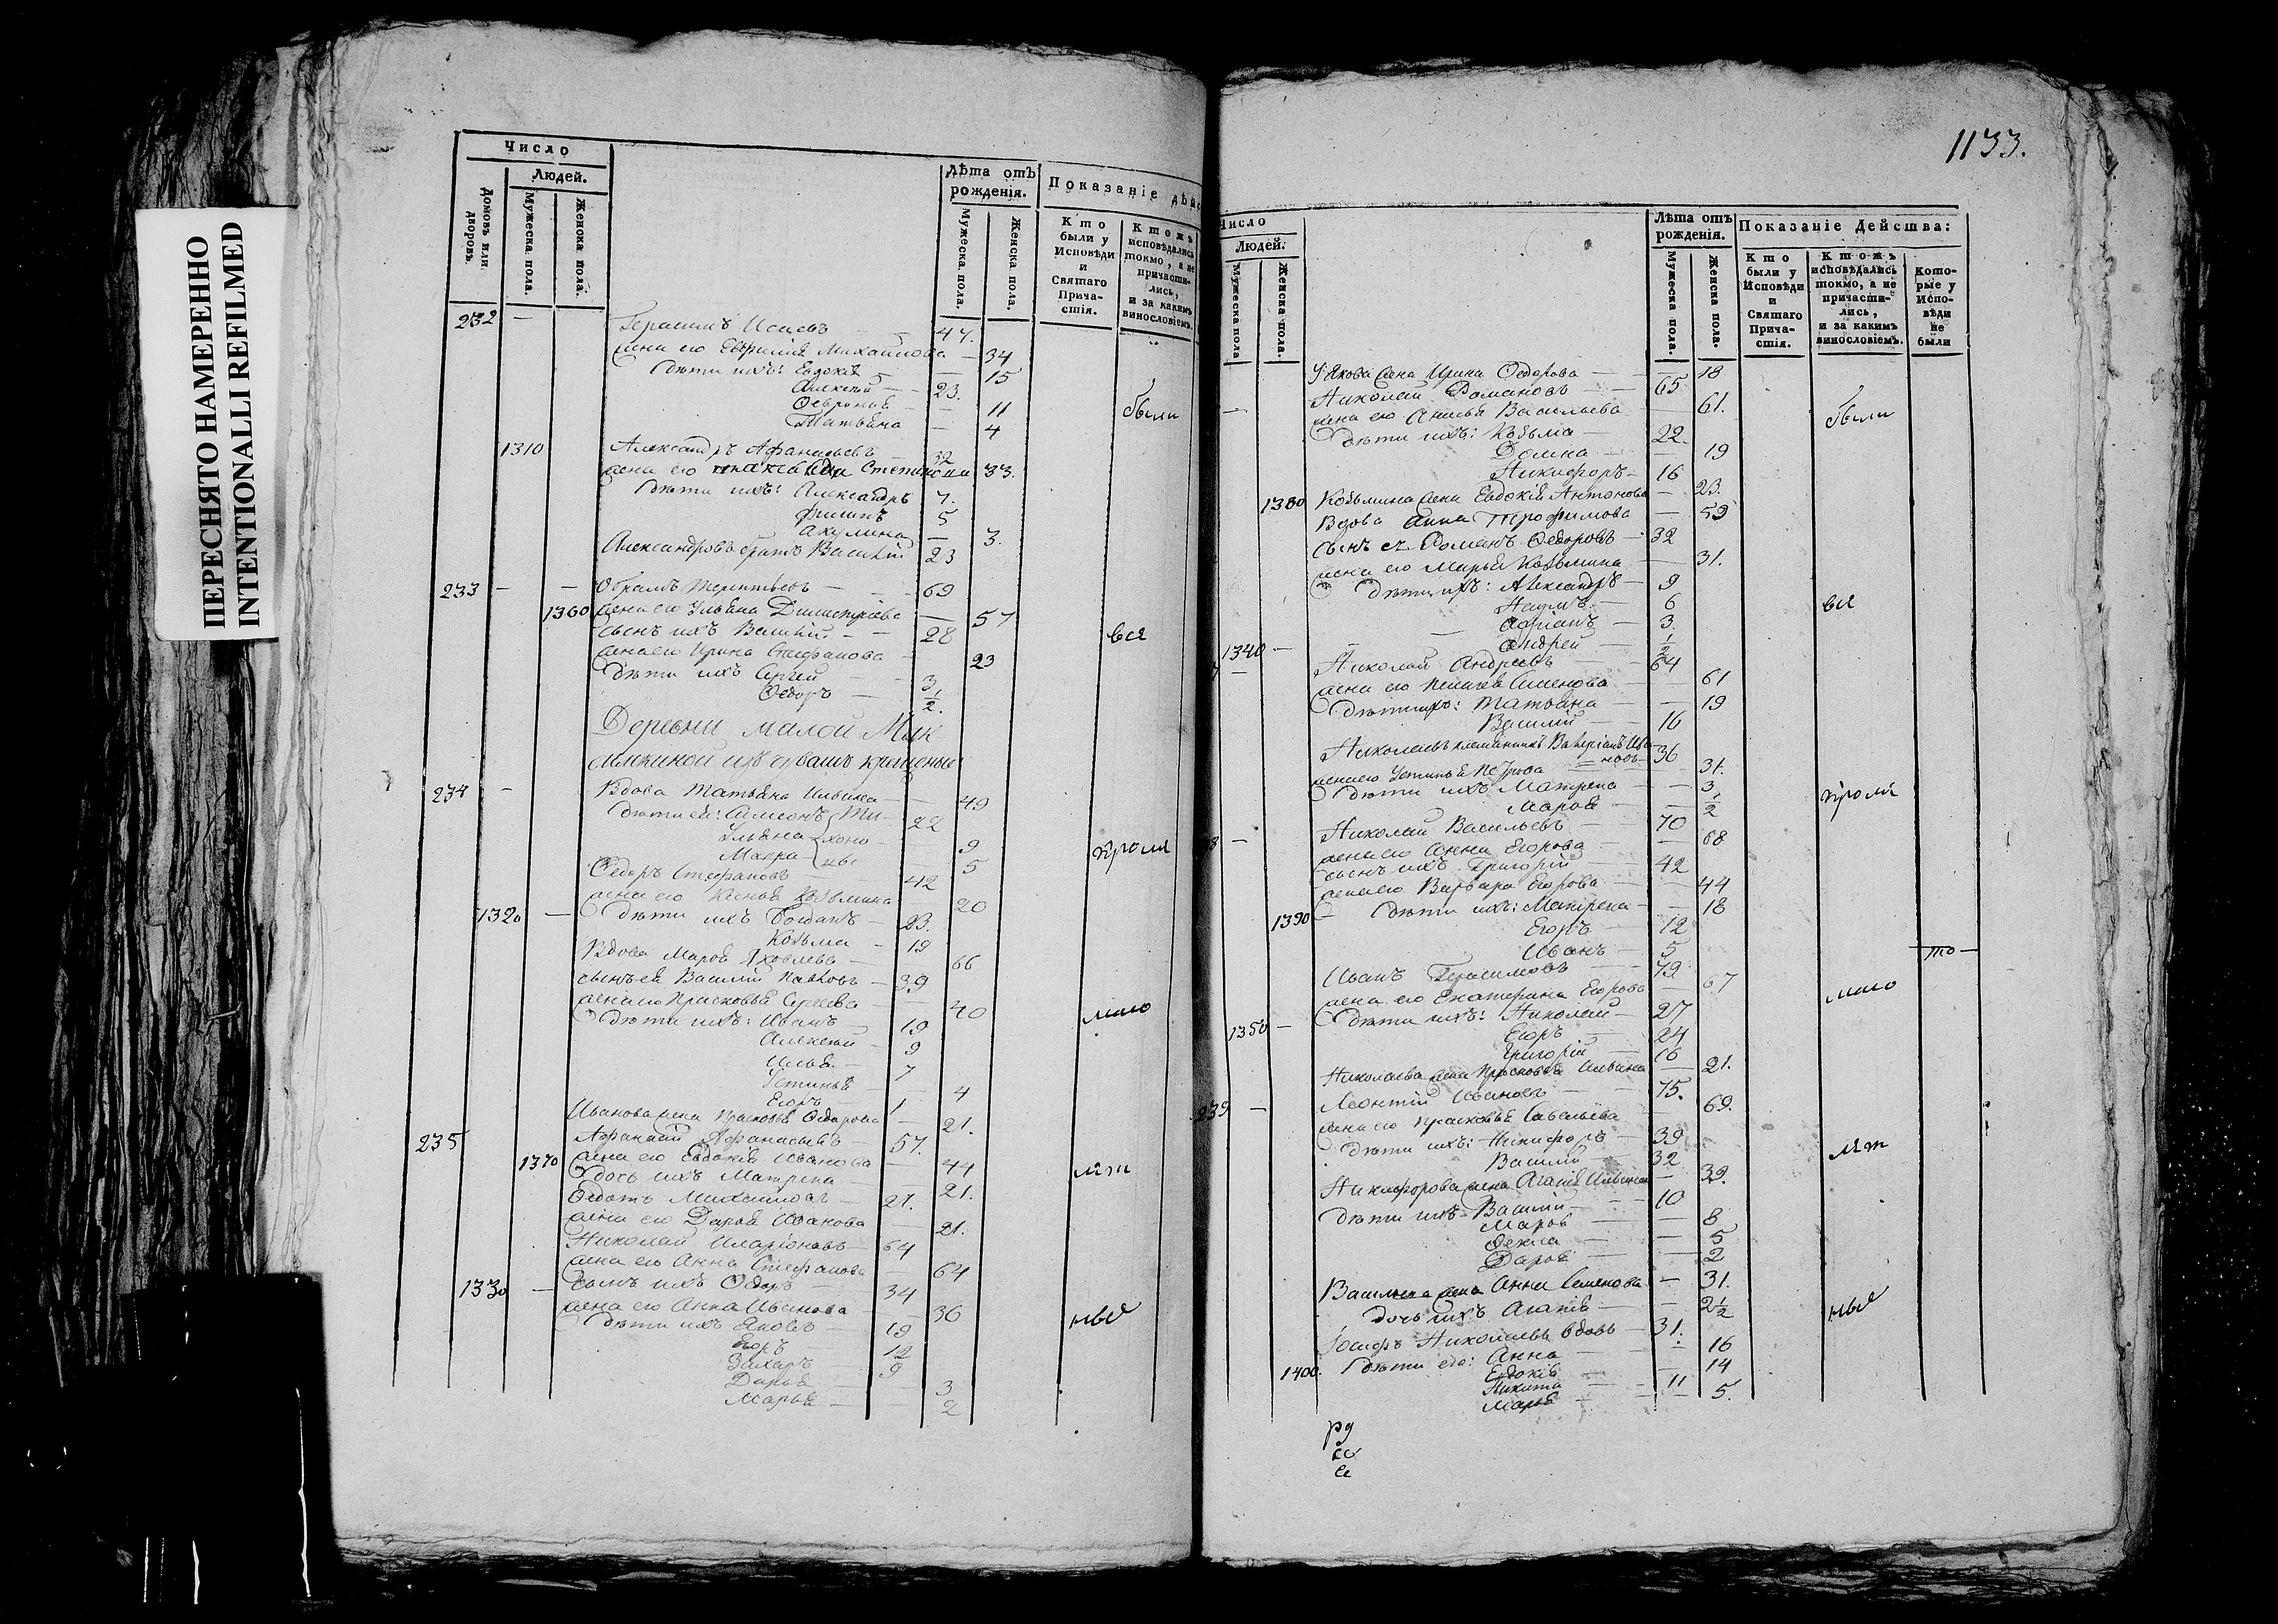 ПЕРЕСНЯТО НАМЕРЕННО
INTENTIONALLI REFILMED
Число
Людей.
Домовъ или дворовъ.
Мужеска пола.
Женска пола.
Лѣта отъ рожденія.
Мужеска пола.
Женска пола.
Показаніе дѣйс
Кто были у Исповѣди и Святаго Прича- стія.
Ктожъ исповѣдались токмо, а не причасти- лись, и за какимъ винословіемъ.
232 — Герасимъ Исаевъ — 47.
жена его Евфимія Михайлова — 34
Дѣти ихъ: Евдокія — 15
Алексѣй — 23.
Февронія — 11 были
Татьяна — 4
1310 Александръ Афанасьевъ — 32
жена его Степанова 33.
Дѣти ихъ: Александръ 7.
Филипъ 5
Акулина — 3.
Александровъ братъ Василій 23
233 — — Абрамъ Терентьевъ — 69
1360 жена его Ульяна Димитріева — 57
сынъ ихъ Василій — 28 вся
жена его Ирина Стефанова — 23
Дѣти ихъ Сергей — 3
Ѳедоръ — 1/2.
Деревни малой Мик
изъ чувашъ крещеные
234 — Вдова Татьяна Ильина — 49
Дѣти ей: Симеонъ Ти- 22
Ульяна хоно- 9
Мавра вы 5 кромѣ
Ѳедоръ Стефановъ — 42
жена его Ксенья Козьмина 20
1320 — Дѣти ихъ Богданъ — 23.
Козьма — 19
Вдова Марфа Яковлева — 66
сынъ ея Василій Павловъ — 39
жена его Прасковья Сергеева — 40 мало
Дѣти ихъ: Иванъ — 19
Алексѣй — 9
Илья — 7
Устинья — 4
Егоръ — 1
Иванова жена Прасковья Ѳедорова — 21.
235 Афанасій Афанасьевъ — 57.
1370 жена его Евдокія Иванова — 44 лѣт
дочь ихъ Матрена — 21.
Ѳедотъ Михайловъ 21.
жена его Дарья Иванова — 21.
Николай Иларіоновъ — 64
жена его Анна Стефанова — 64
1330 — сынъ ихъ Ѳедоръ — 34
жена его Анна Иванова — 36 ные
Дѣти ихъ Яковъ — 19
Егоръ 12
Захаръ 9
Дарья — 3
Марья — 2
1133.
Число
Людей.
Мужеска пола
Женска пола.
Лѣта отъ рожденія.
Мужеска пола.
Женска пола.
Показаніе Действа:
Кто были у Исповѣди и Святаго Прича- стія.
Ктожъ исповѣдались токмо, а не причасти- лись, и за какимъ винословіемъ.
Кото- рые у Испо- вѣди не были
Якова жена Ирина Ѳедорова — 18
Николай Романовъ — 65
— жена его Анисья Васильева — 61. были
Дѣти ихъ: Козьма — 22.
Домна — 19
Никифоръ — 16
1380 Козьмина жена Евдокія Антонова — 23.
Вдова Анна Трофимова — 59
сынъ ея Романъ Ѳедоровъ — 32
жена его Марья Козьмина — 31.
Дѣти ихъ: Александръ — 9
Наумъ — 6 вся
Афріанъ — 3.
1340 — Андрей — 1/2
Николай Андреевъ — 64
жена его Семенова — 61
Дѣти ихъ: Татьяна — 19
Василій — 16
Николаевъ племянникъ Валеріанъ Ива- новъ 36
жена его Устинья Петрова 31.
Дѣти ихъ Матрена — 3 кромѣ
Марфа — 1/2
Николай Васильевъ 70
8 — жена его Анна Егорова — 68
сынъ ихъ Григорій 42
жена его Варвара Егорова — 44
1390 — Дѣти ихъ: Матрена — 18
Егоръ — 12
Иванъ — 5 то —
Иванъ Герасимовъ 79
жена его Екатерина Егорова — 67 мало
1350 — Дѣти ихъ: Николай — 27
Егоръ — 24
Григорій — 16
Николаева жена Прасковья Ильина — 21.
239 — Леонтій Ивановъ 75.
жена его Прасковья Савельева — 69.
Дѣти ихъ: Никифоръ — 39
Василій — 32 лѣт
Никифорова жена Агапія Ильина — 39.
Дѣти ихъ Василій 10
Марфа — 8
Ѳекла — 5
Дарья — 2
Васильева жена Анна Семенова — 31.
дочь ихъ Агапія — 2 1/2 ные
Іосифъ Николаевъ вдовъ — 31.
1400. Дѣти его: Анна — 16
Евдокія — 14
Никита — 11
Марья — 5.